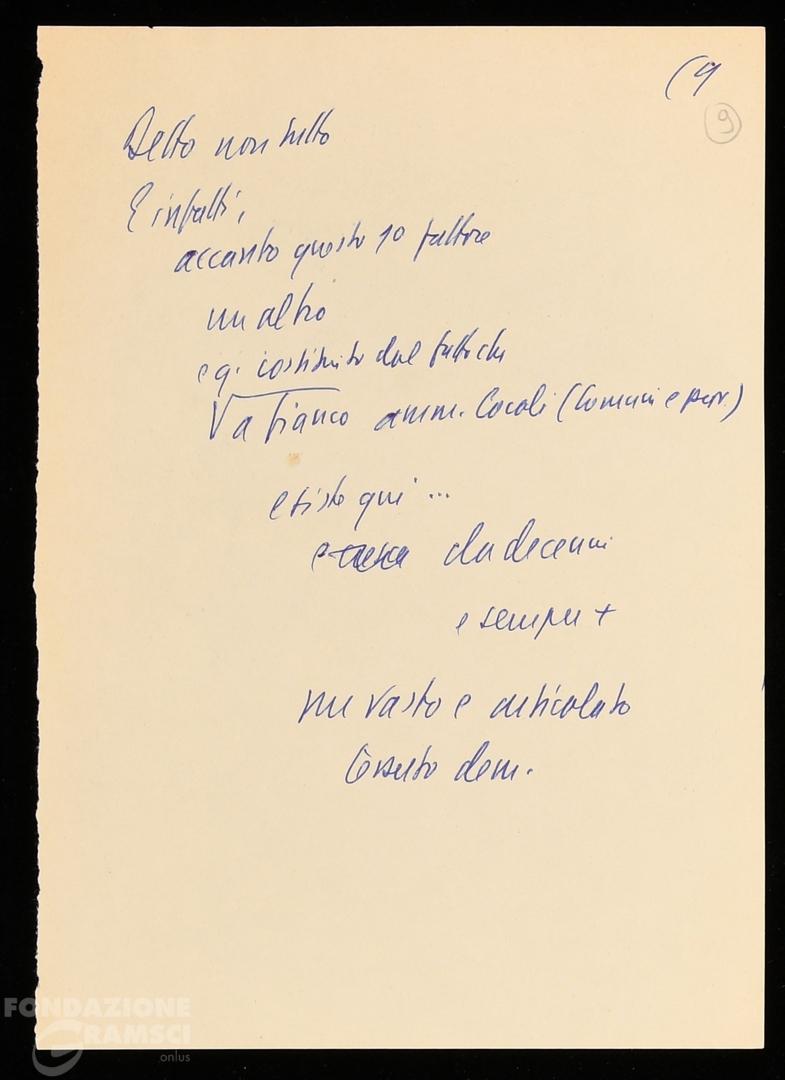 (9
9
Detto non tutto
E infatti,
accanto questo 1o fattore
un altro
e q. costituito dal fatto che
V a fianco amm. locali (Comuni e prov.)
esiste qui ...
e da decenni
e sempre +
un vasto e articolato
tessuto dem.
FONDAZIONE
GRAMSCI
onlus